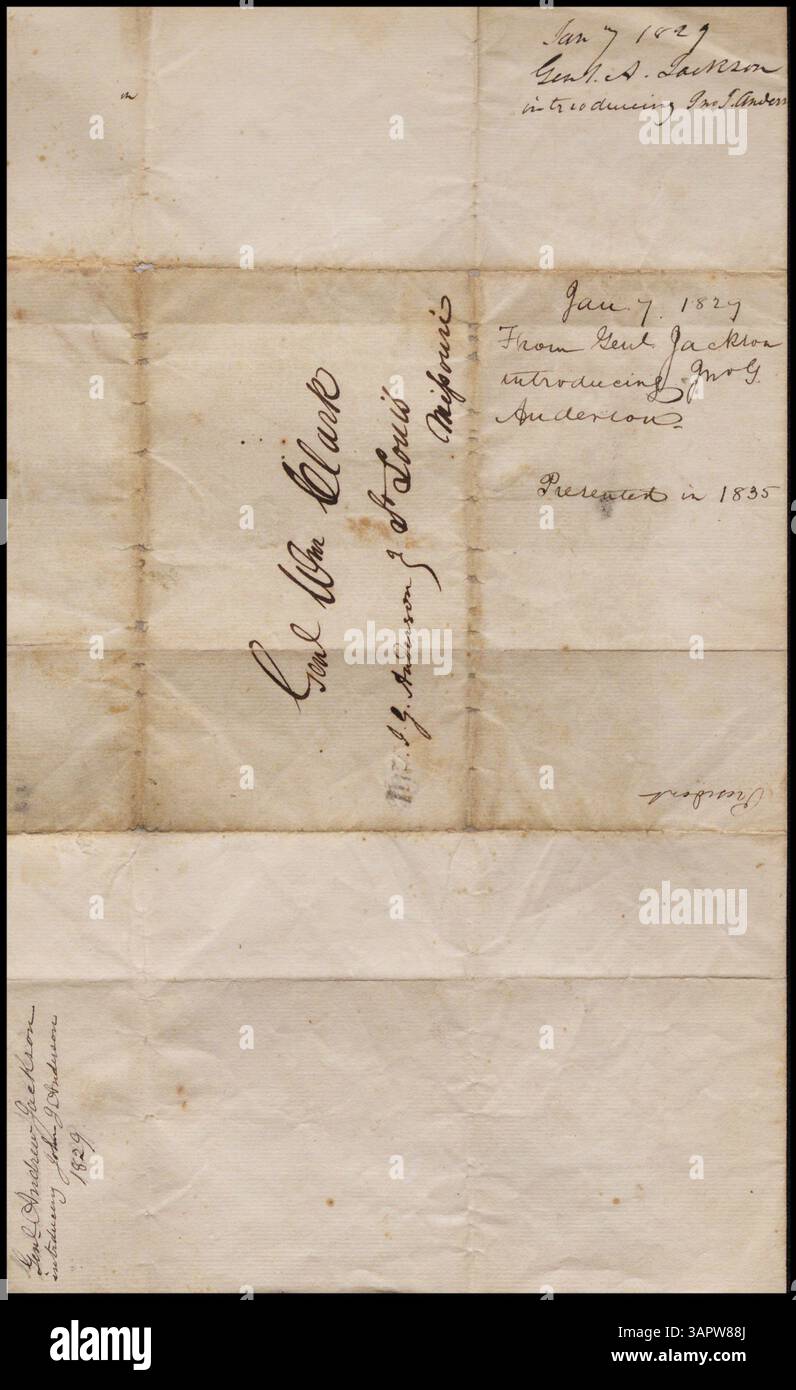 Jan 7 1829
Genl. A. Jackson
introducing Jno J. Anders
Jan. 7. 1829
From Genl Jackson
introducing Jno G.
Anderson.
Presented in 1835
Genl Wm Clark
St Louis
Missouri
J. G. Anderson
President
Genl Andrew Jackson
introducing John G Anderson
1829
a
alamy
Image ID: 3APW88J
www.alamy.com